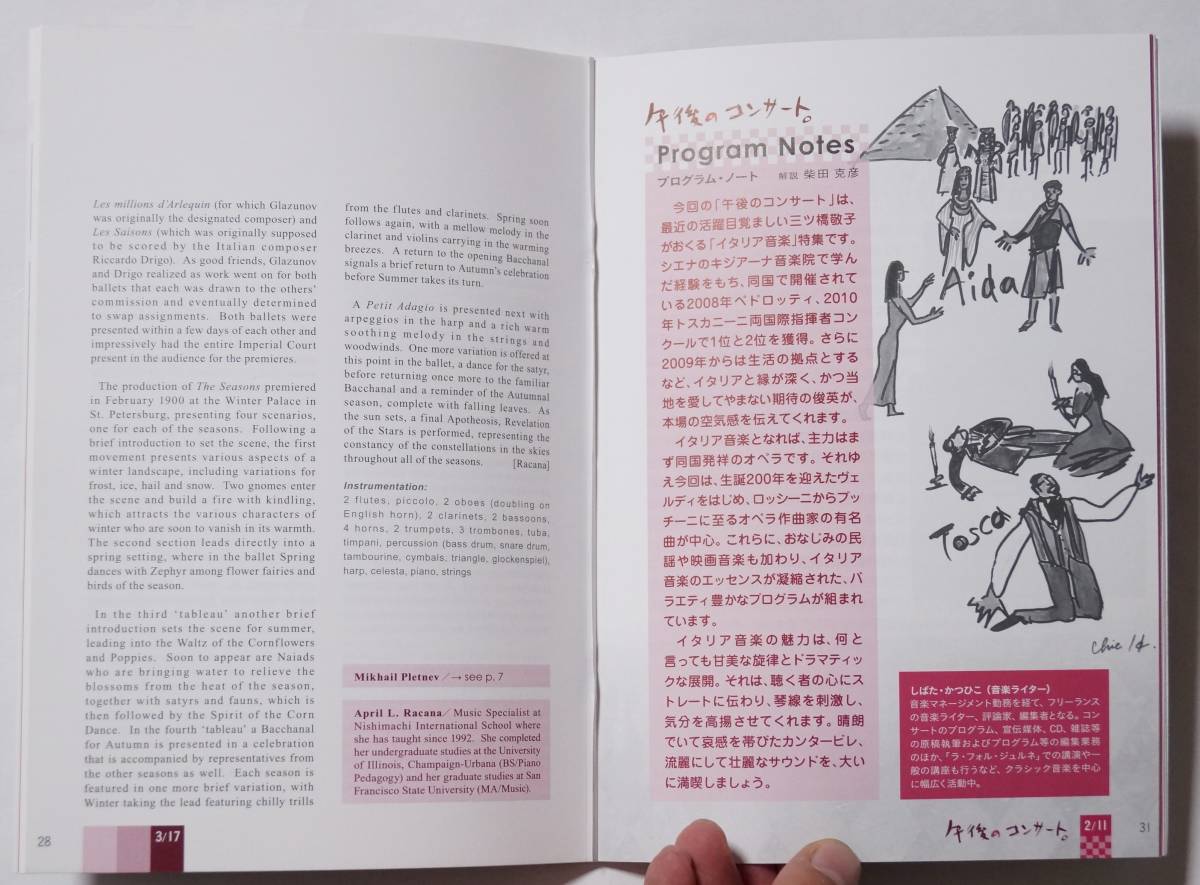 Les millions d'Arlequin (for which Glazunov
was originally the designated composer) and
Les Saisons (which was originally supposed
to be scored by the Italian composer
Riccardo Drigo). As good friends, Glazunov
and Drigo realized as work went on for both
ballets that each was drawn to the others'
commission and eventually determined
to swap assignments. Both ballets were
presented within a few days of each other and
impressively had the entire Imperial Court
present in the audience for the premieres.
The production of The Seasons premiered
in February 1900 at the Winter Palace in
St. Petersburg, presenting four scenarios,
one for each of the seasons. Following a
brief introduction to set the scene, the first
movement presents various aspects of a
winter landscape, including variations for
frost, ice, hail and snow. Two gnomes enter
the scene and build a fire with kindling,
which attracts the various characters of
winter who are soon to vanish in its warmth.
The second section leads directly into a
spring setting, where in the ballet Spring
dances with Zephyr among flower fairies and
birds of the season.
In the third 'tableau' another brief
introduction sets the scene for summer,
leading into the Waltz of the Cornflowers
and Poppies. Soon to appear are Naiads
who are bringing water to relieve the
blossoms from the heat of the season,
together with satyrs and fauns, which is
then followed by the Spirit of the Corn
Dance. In the fourth 'tableau' a Bacchanal
for Autumn is presented in a celebration
that is accompanied by representatives from
the other seasons as well. Each season is
featured in one more brief variation, with
Winter taking the lead featuring chilly trills
from the flutes and clarinets. Spring soon
follows again, with a mellow melody in the
clarinet and violins carrying in the warming
breezes. A return to the opening Bacchanal
signals a brief return to Autumn's celebration
before Summer takes its turn.
A Petit Adagio is presented next with
arpeggios in the harp and a rich warm
soothing melody in the strings and
woodwinds. One more variation is offered at
this point in the ballet, a dance for the satyr,
before returning once more to the familiar
Bacchanal and a reminder of the Autumnal
season, complete with falling leaves. As
the sun sets, a final Apotheosis, Revelation
of the Stars is performed, representing the
constancy of the constellations in the skies
throughout all of the seasons. [Racana]
Instrumentation:
2 flutes, piccolo, 2 oboes (doubling on
English horn), 2 clarinets, 2 bassoons,
4 horns, 2 trumpets, 3 trombones, tuba,
timpani, percussion (bass drum, snare drum,
tambourine, cymbals, triangle, glockenspiel),
harp, celesta, piano, strings
Mikhail Pletnev／→ see p. 7
April L. Racana／Music Specialist at
Nishimachi International School where
she has taught since 1992. She completed
her undergraduate studies at the University
of Illinois, Champaign-Urbana (BS/Piano
Pedagogy) and her graduate studies at San
Francisco State University (MA/Music).
28
3/17
午後のコンサート。
Program Notes
プログラム・ノート 解説 柴田 克彦
今回の「午後のコンサート」は、
最近の活躍目覚ましい三ツ橋敬子
がおくる「イタリア音楽」特集です。
シエナのキジアーナ音楽院で学ん
だ経験をもち、同国で開催されて
いる2008年ペドロッティ、2010
年トスカニーニ両国際指揮者コン
クールで1位と2位を獲得。さらに
2009年からは生活の拠点とする
など、イタリアと縁が深く、かつ当
地を愛してやまない期待の俊英が、
本場の空気感を伝えてくれます。
イタリア音楽となれば、主力はま
ず同国発祥のオペラです。それゆ
え今回は、生誕200年を迎えたヴェ
ルディをはじめ、ロッシーニからプッ
チーニに至るオペラ作曲家の有名
曲が中心。これらに、おなじみの民
謡や映画音楽も加わり、イタリア
音楽のエッセンスが凝縮された、バ
ラエティ豊かなプログラムが組まれ
ています。
イタリア音楽の魅力は、何と
言っても甘美な旋律とドラマティッ
クな展開。それは、聴く者の心にス
トレートに伝わり、琴線を刺激し、
気分を高揚させてくれます。晴朗
でいて哀感を帯びたカンタービレ、
流麗にして壮麗なサウンドを、大い
に満喫しましょう。
Aida
Tosca
しばた・かつひこ（音楽ライター）
音楽マネージメント勤務を経て、フリーランス
の音楽ライター、評論家、編集者となる。コン
サートのプログラム、宣伝媒体、CD、雑誌等
の原稿執筆およびプログラム等の編集業務
のほか、「ラ・フォル・ジュルネ」での講演や一
般の講座も行うなど、クラシック音楽を中心
に幅広く活動中。
午後のコンサート。
2/11
31